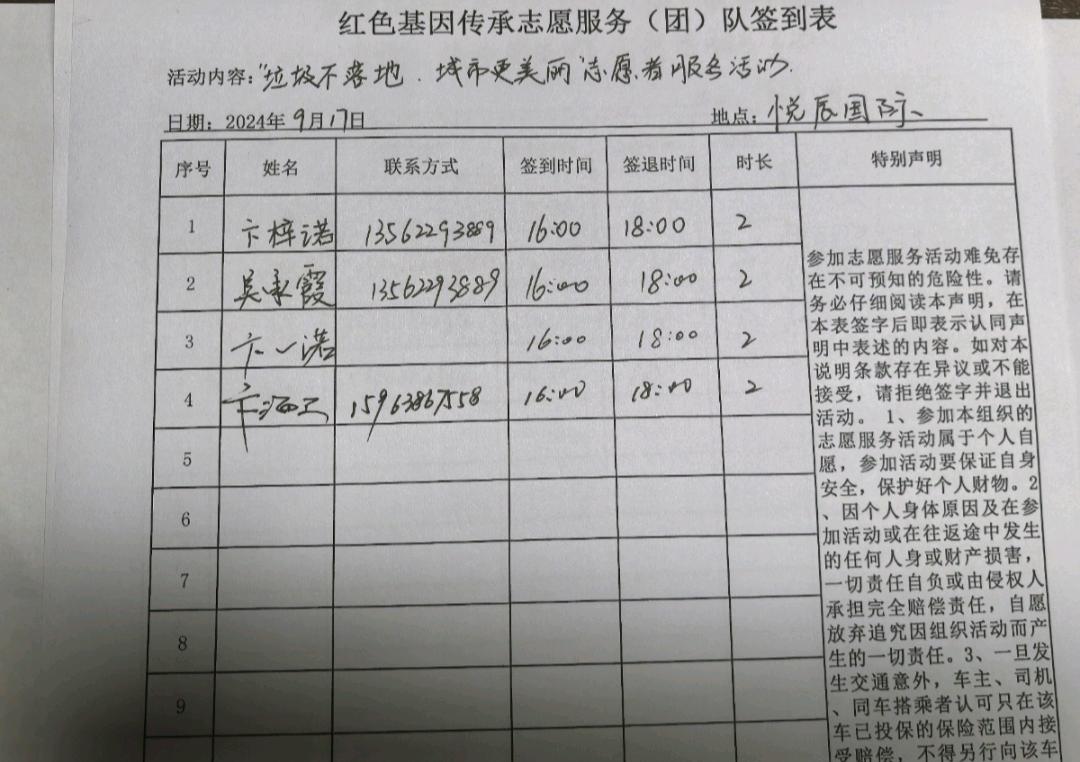 红色基因传承志愿服务（团）队签到表
活动内容：“垃圾不落地．城市更美丽”志愿者服务活动．
日期：2024年9月17日 地点：悦辰国际、
序号 姓名 联系方式 签到时间 签退时间 时长 特别声明
1 卞梓诺 13562293889 16:00 18:00 2
2 吴承霞 13562293889 16:00 18:00 2
3 卞一诺 16:00 18:00 2
4 卞 15963867558 16:00 18:00 2
5
6
7
8
9
参加志愿服务活动难免存
在不可预知的危险性。请
务必仔细阅读本声明，在
本表签字后即表示认同声
明中表述的内容。如对本
说明条款存在异议或不能
接受，请拒绝签字并退出
活动。1、参加本组织的
志愿服务活动属于个人自
愿，参加活动要保证自身
安全，保护好个人财物。2
、因个人身体原因及在参
加活动或在往返途中发生
的任何人身或财产损害，
一切责任自负或由侵权人
承担完全赔偿责任，自愿
放弃追究因组织活动而产
生的一切责任。3、一旦发
生交通意外，车主、司机
、同车搭乘者认可只在该
车已投保的保险范围内接
受赔偿，不得另行向该车